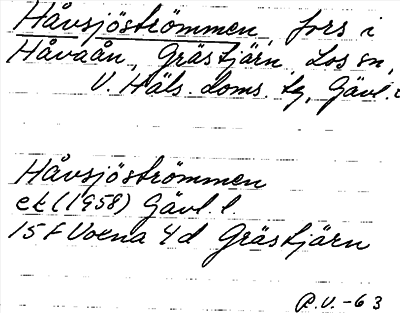 Håvsjöströmmen, fors i
Håvaån, Grästjärn, Los sn,
V. Häls. doms. tg, Gävl. l
Håvsjöströmmen
ek (1958) Gävl. l.
15F Voxna 4d Grästjärn
P.V. -63